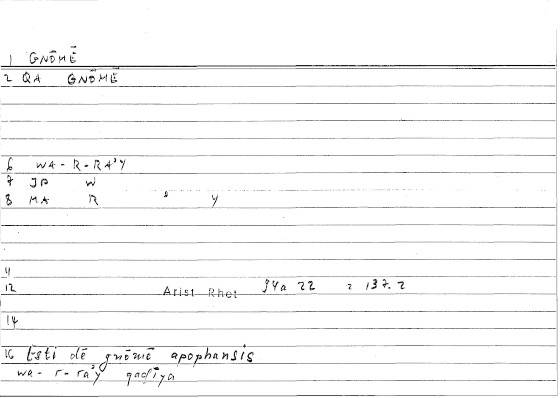 1 GNŌMĒ
2 QA GNŌMĒ
6 WA-R-RAʾY
7 JP W
8 MA R ʾ Y
11
12 Arist Rhet 94a 22 = 137.2
14
16 Esti dē gnōmē apophansis
wa-r-raʾy qaḍīya